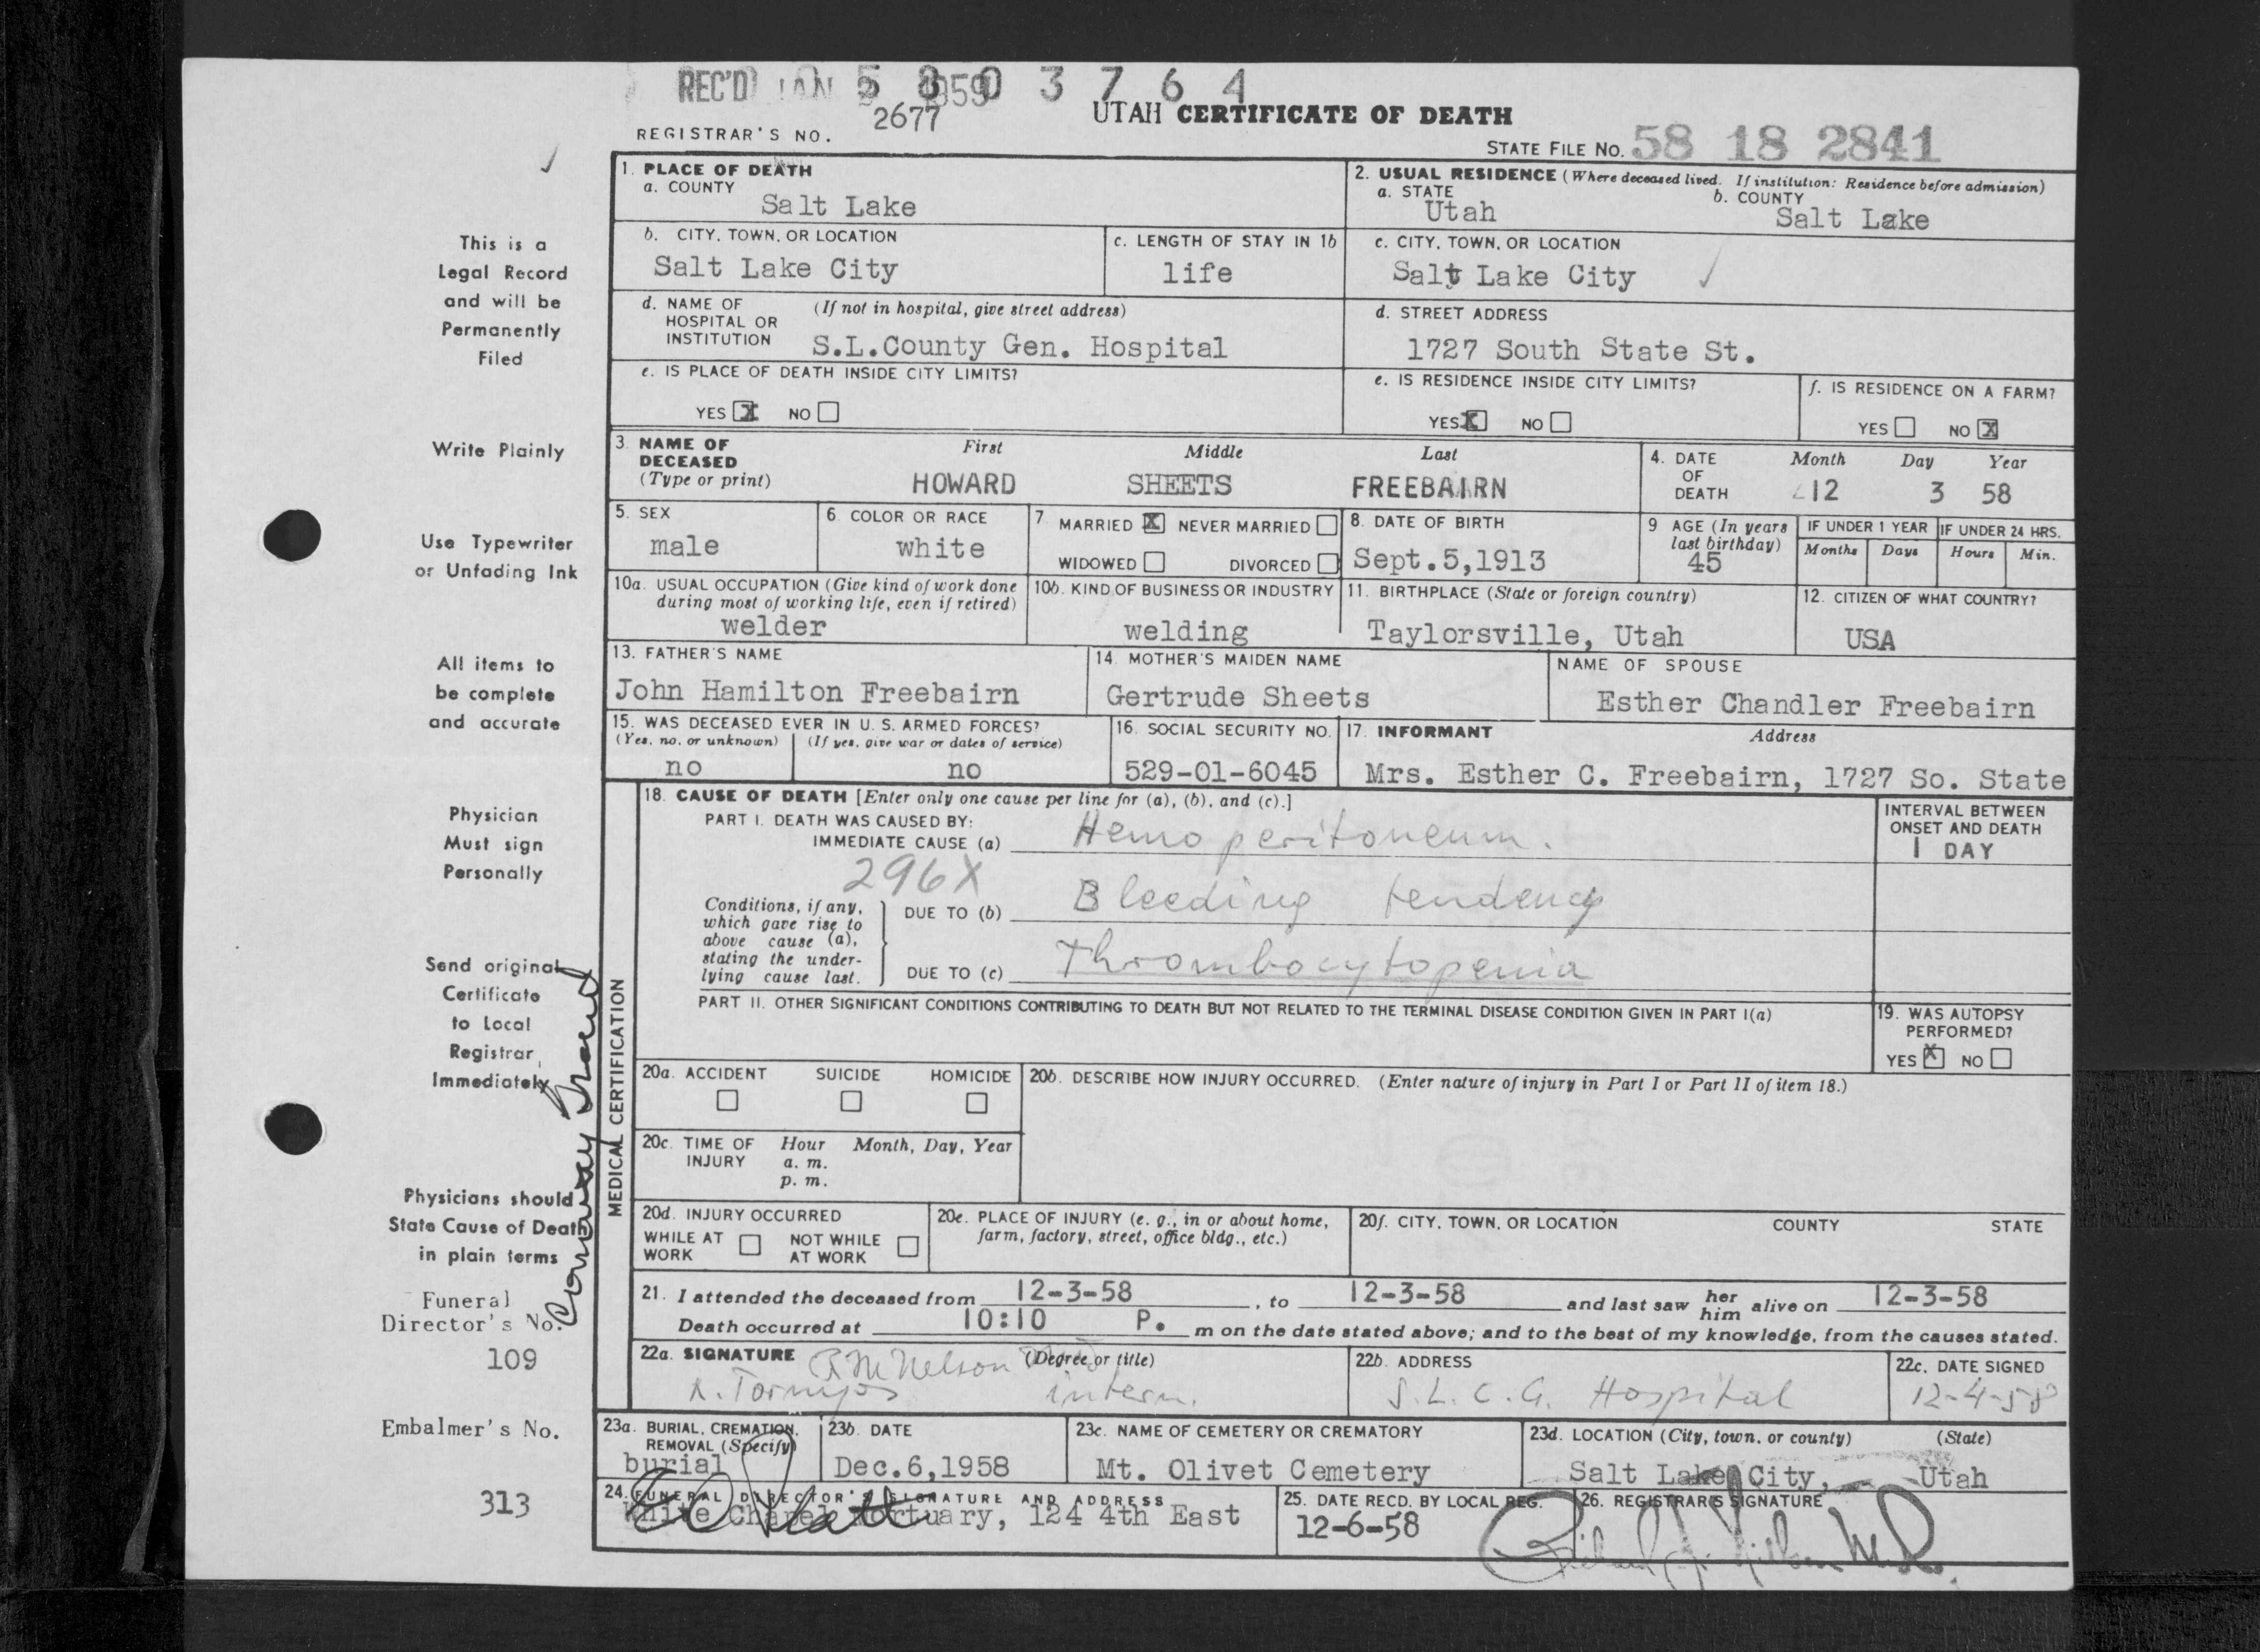 REC'D JAN 2 1959
5 8 0 3 7 6 4
REGISTRAR'S NO. 2677
UTAH CERTIFICATE OF DEATH
STATE FILE NO. 58 18 2841
1. PLACE OF DEATH
a. COUNTY
Salt Lake
2. USUAL RESIDENCE (Where deceased lived. If institution: Residence before admission)
a. STATE b. COUNTY
Utah Salt Lake
b. CITY, TOWN, OR LOCATION
Salt Lake City
c. LENGTH OF STAY IN 1b
life
c. CITY, TOWN, OR LOCATION
Salt Lake City
d. NAME OF HOSPITAL OR INSTITUTION (If not in hospital, give street address)
S.L.County Gen. Hospital
d. STREET ADDRESS
1727 South State St.
e. IS PLACE OF DEATH INSIDE CITY LIMITS?
YES X NO
e. IS RESIDENCE INSIDE CITY LIMITS?
YES X NO
f. IS RESIDENCE ON A FARM?
YES NO X
3. NAME OF DECEASED (Type or print)
First Middle Last
HOWARD SHEETS FREEBAIRN
4. DATE OF DEATH
Month Day Year
12 3 58
5. SEX
male
6. COLOR OR RACE
white
7. MARRIED X NEVER MARRIED
WIDOWED DIVORCED
8. DATE OF BIRTH
Sept.5,1913
9 AGE (In years last birthday)
45
IF UNDER 1 YEAR
Months Days
IF UNDER 24 HRS.
Hours Min.
10a. USUAL OCCUPATION (Give kind of work done during most of working life, even if retired)
welder
10b. KIND OF BUSINESS OR INDUSTRY
welding
11. BIRTHPLACE (State or foreign country)
Taylorsville, Utah
12. CITIZEN OF WHAT COUNTRY?
USA
13. FATHER'S NAME
John Hamilton Freebairn
14. MOTHER'S MAIDEN NAME
Gertrude Sheets
NAME OF SPOUSE
Esther Chandler Freebairn
15. WAS DECEASED EVER IN U. S. ARMED FORCES?
(Yes, no, or unknown) (If yes, give war or dates of service)
no no
16. SOCIAL SECURITY NO.
529-01-6045
17. INFORMANT Address
Mrs. Esther C. Freebairn, 1727 So. State
MEDICAL CERTIFICATION
18. CAUSE OF DEATH [Enter only one cause per line for (a), (b), and (c).]
PART I. DEATH WAS CAUSED BY:
IMMEDIATE CAUSE (a) Hemoperitoneum.
296X
Conditions, if any, which gave rise to above cause (a), stating the underlying cause last.
DUE TO (b) Bleeding tendency
DUE TO (c) Thrombocytopenia
INTERVAL BETWEEN ONSET AND DEATH
1 DAY
PART II. OTHER SIGNIFICANT CONDITIONS CONTRIBUTING TO DEATH BUT NOT RELATED TO THE TERMINAL DISEASE CONDITION GIVEN IN PART I(a)
19. WAS AUTOPSY PERFORMED?
YES X NO
20a. ACCIDENT SUICIDE HOMICIDE
20b. DESCRIBE HOW INJURY OCCURRED. (Enter nature of injury in Part I or Part II of item 18.)
20c. TIME OF INJURY Hour Month, Day, Year
a. m.
p. m.
20d. INJURY OCCURRED
WHILE AT WORK NOT WHILE AT WORK
20e. PLACE OF INJURY (e. g., in or about home, farm, factory, street, office bldg., etc.)
20f. CITY, TOWN, OR LOCATION COUNTY STATE
21. I attended the deceased from 12-3-58, to 12-3-58 and last saw her him alive on 12-3-58
Death occurred at 10:10 P. m on the date stated above; and to the best of my knowledge, from the causes stated.
22a. SIGNATURE (Degree or title)
R M Nelson
intern.
22b. ADDRESS
S.L.C.G. Hospital
22c. DATE SIGNED
12-4-58
23a. BURIAL, CREMATION, REMOVAL (Specify)
burial
23b. DATE
Dec.6,1958
23c. NAME OF CEMETERY OR CREMATORY
Mt. Olivet Cemetery
23d. LOCATION (City, town, or county) (State)
Salt Lake City, Utah
24. FUNERAL DIRECTOR'S SIGNATURE AND ADDRESS
White Chapel Mortuary, 124 4th East
25. DATE RECD. BY LOCAL REG.
12-6-58
26. REGISTRAR'S SIGNATURE
This is a
Legal Record
and will be
Permanently
Filed
Write Plainly
Use Typewriter
or Unfading Ink
All items to
be complete
and accurate
Physician
Must sign
Personally
Send original
Certificate
to Local
Registrar
Immediately
Physicians should
State Cause of Death
in plain terms
Funeral
Director's No.
109
Embalmer's No.
313